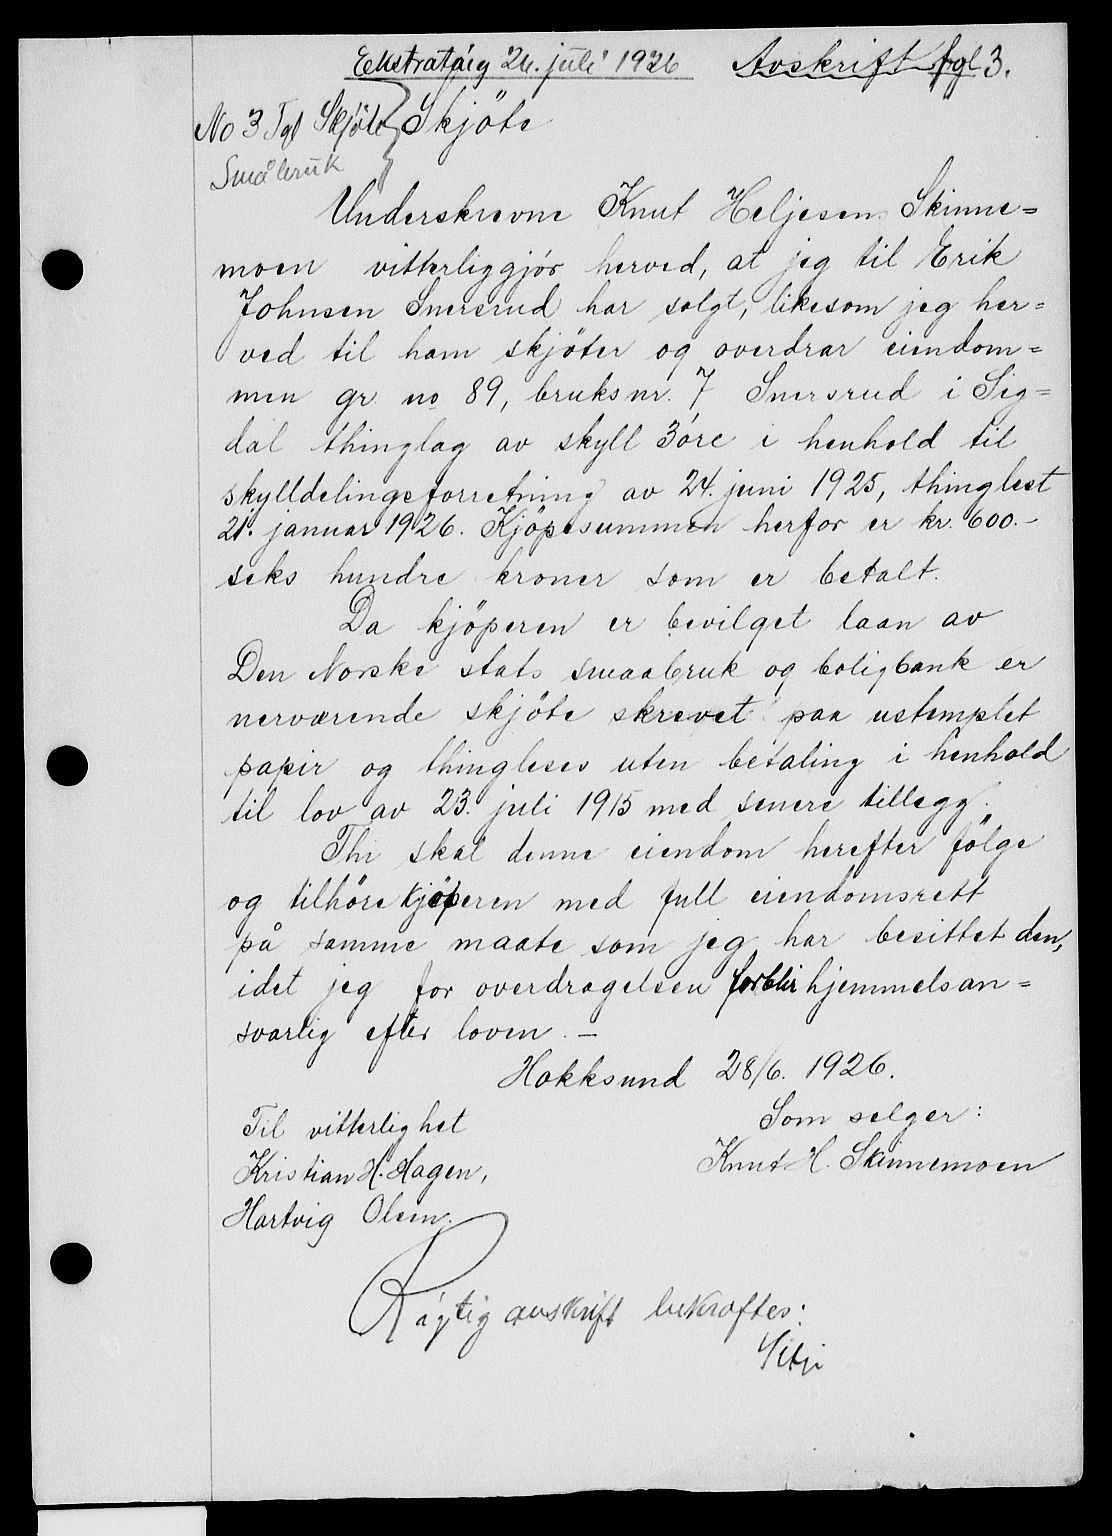 Ekstrating 26. juli 1926 Avskrift fgl 3.
No 3 Tgl Skjöte Skjöte
Småbruk
Underskrevne Knut Heljesen Skinne=
moen vitterliggjör herved, at jeg til Erik
Johnsen Snersrud har solgt, likesom jeg her=
ved til ham skjöter og overdrar eiendom=
men gr. no 89, bruksnr. 7 Snersrud i Sig=
dal thinglag av skyll 3 öre i henhold til
skylldelingsforretning av 24. juni 1925, thinglest
21. januar 1926. Kjöpesummen herfor er kr. 600.-
seks hundre kroner som er betalt.
Da kjöperen er bevilget laan av
Den Norske stats smaabruk og boligbank er
nerværende skjöte skrevet paa ustemplet
papir og thingleses uten betaling i henhold
til lov av 23. juli 1915 med senere tillegg.
Thi skal denne eiendom herefter fölge
og tilhöre kjöperen med full eiendomsrett
på samme maate som jeg har besittet den,
idet jeg for overdragelsen forblir hjemmelsan=
svarlig efter loven. -
Hokksund 28/6. 1926.
Til vitterlighet Som selger:
Kristian H. Hagen, Knut H. Skinnemoen
Hartvig Olsen.
Rigtig avskrift bekræftes: